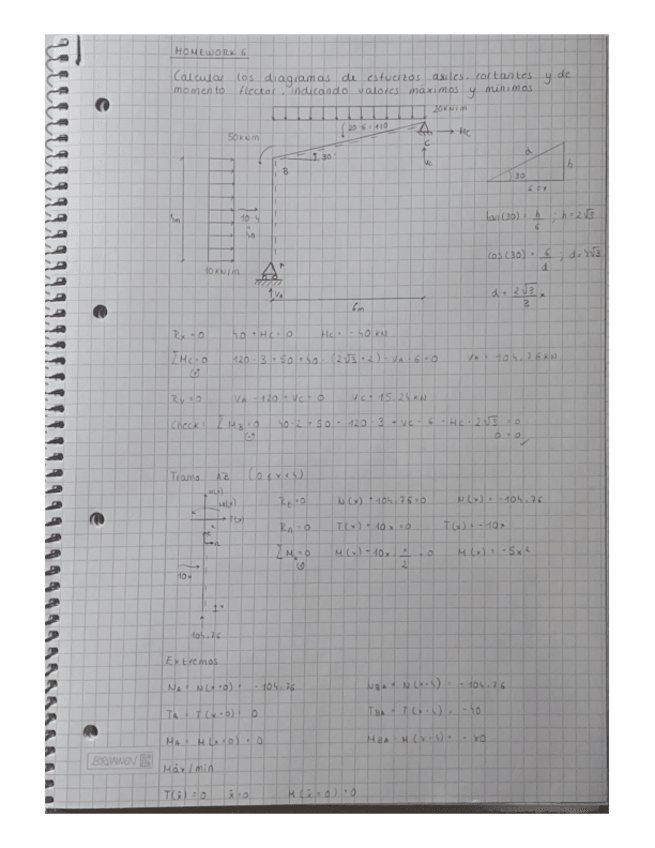 HOMEWORK 6
Calcular los diagramas de esfuerzos axiles, cortantes y de
momento flector, indicando valores máximos y mínimos
20 kN/m
20·6=120
Hc
C
50 kN·m
30°
B
Vc
4m
10·4
40
10 kN/m
A
VA
6m
d
h
30
6=x
tan(30) = h/6 ; h=2√3
cos(30) = 6/d ; d=4√3
d = 2√3/3 x
Rx=0 40+Hc=0 Hc=-40kN
ΣMc=0 120·3+50+40·(2√3+2)-VA·6=0 VA=104.76kN
Ry=0 VA-120+Vc=0 Vc=15.24kN
Check: ΣMB=0 40·2+50-120·3+Vc·6-Hc·2√3=0
0=0 ✓
Tramo AB (0<x<4)
N(x)
M(x)
T(x)
t
n
10x
x
104.76
Rt=0 N(x)+104.76=0 N(x)=-104.76
Rn=0 T(x)+10x=0 T(x)=-10x
ΣMx=0 M(x)+10x x/2=0 M(x)=-5x²
Extremos
NA=N(x=0)=-104.76 NBA=N(x=4)=-104.76
TA=T(x=0)=0 TBA=T(x=4)=-40
MA=M(x=0)=0 MBA=M(x=4)=-80
BRUNNEN
Máx/mín
T(x̄)=0 x̄=0 M(x̄=0)=0